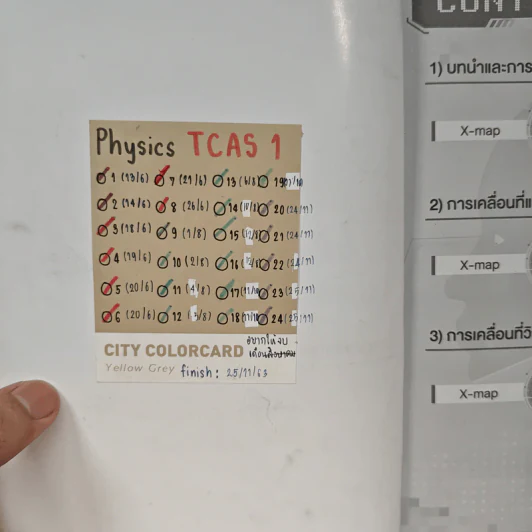 Physics TCAS 1
1 (13/6) 7 (21/6) 13 (6/8) 19
2 (14/6) 8 (26/6) 14 20 (24/11)
3 (18/6) 9 (1/8) 15 21 (24/11)
4 (19/6) 10 (2/8) 16 22 (24/11)
5 (20/6) 11 (4/8) 17 23 (25/11)
6 (20/6) 12 18 24 (25/11)
CITY COLORCARD อยากให้จบ
เดือนสิงหาคม
Yellow Grey finish: 25/11/63
1) บทนำและการ
X-map
2) การเคลื่อนที่แ
X-map
3) การเคลื่อนที่วิ
X-map